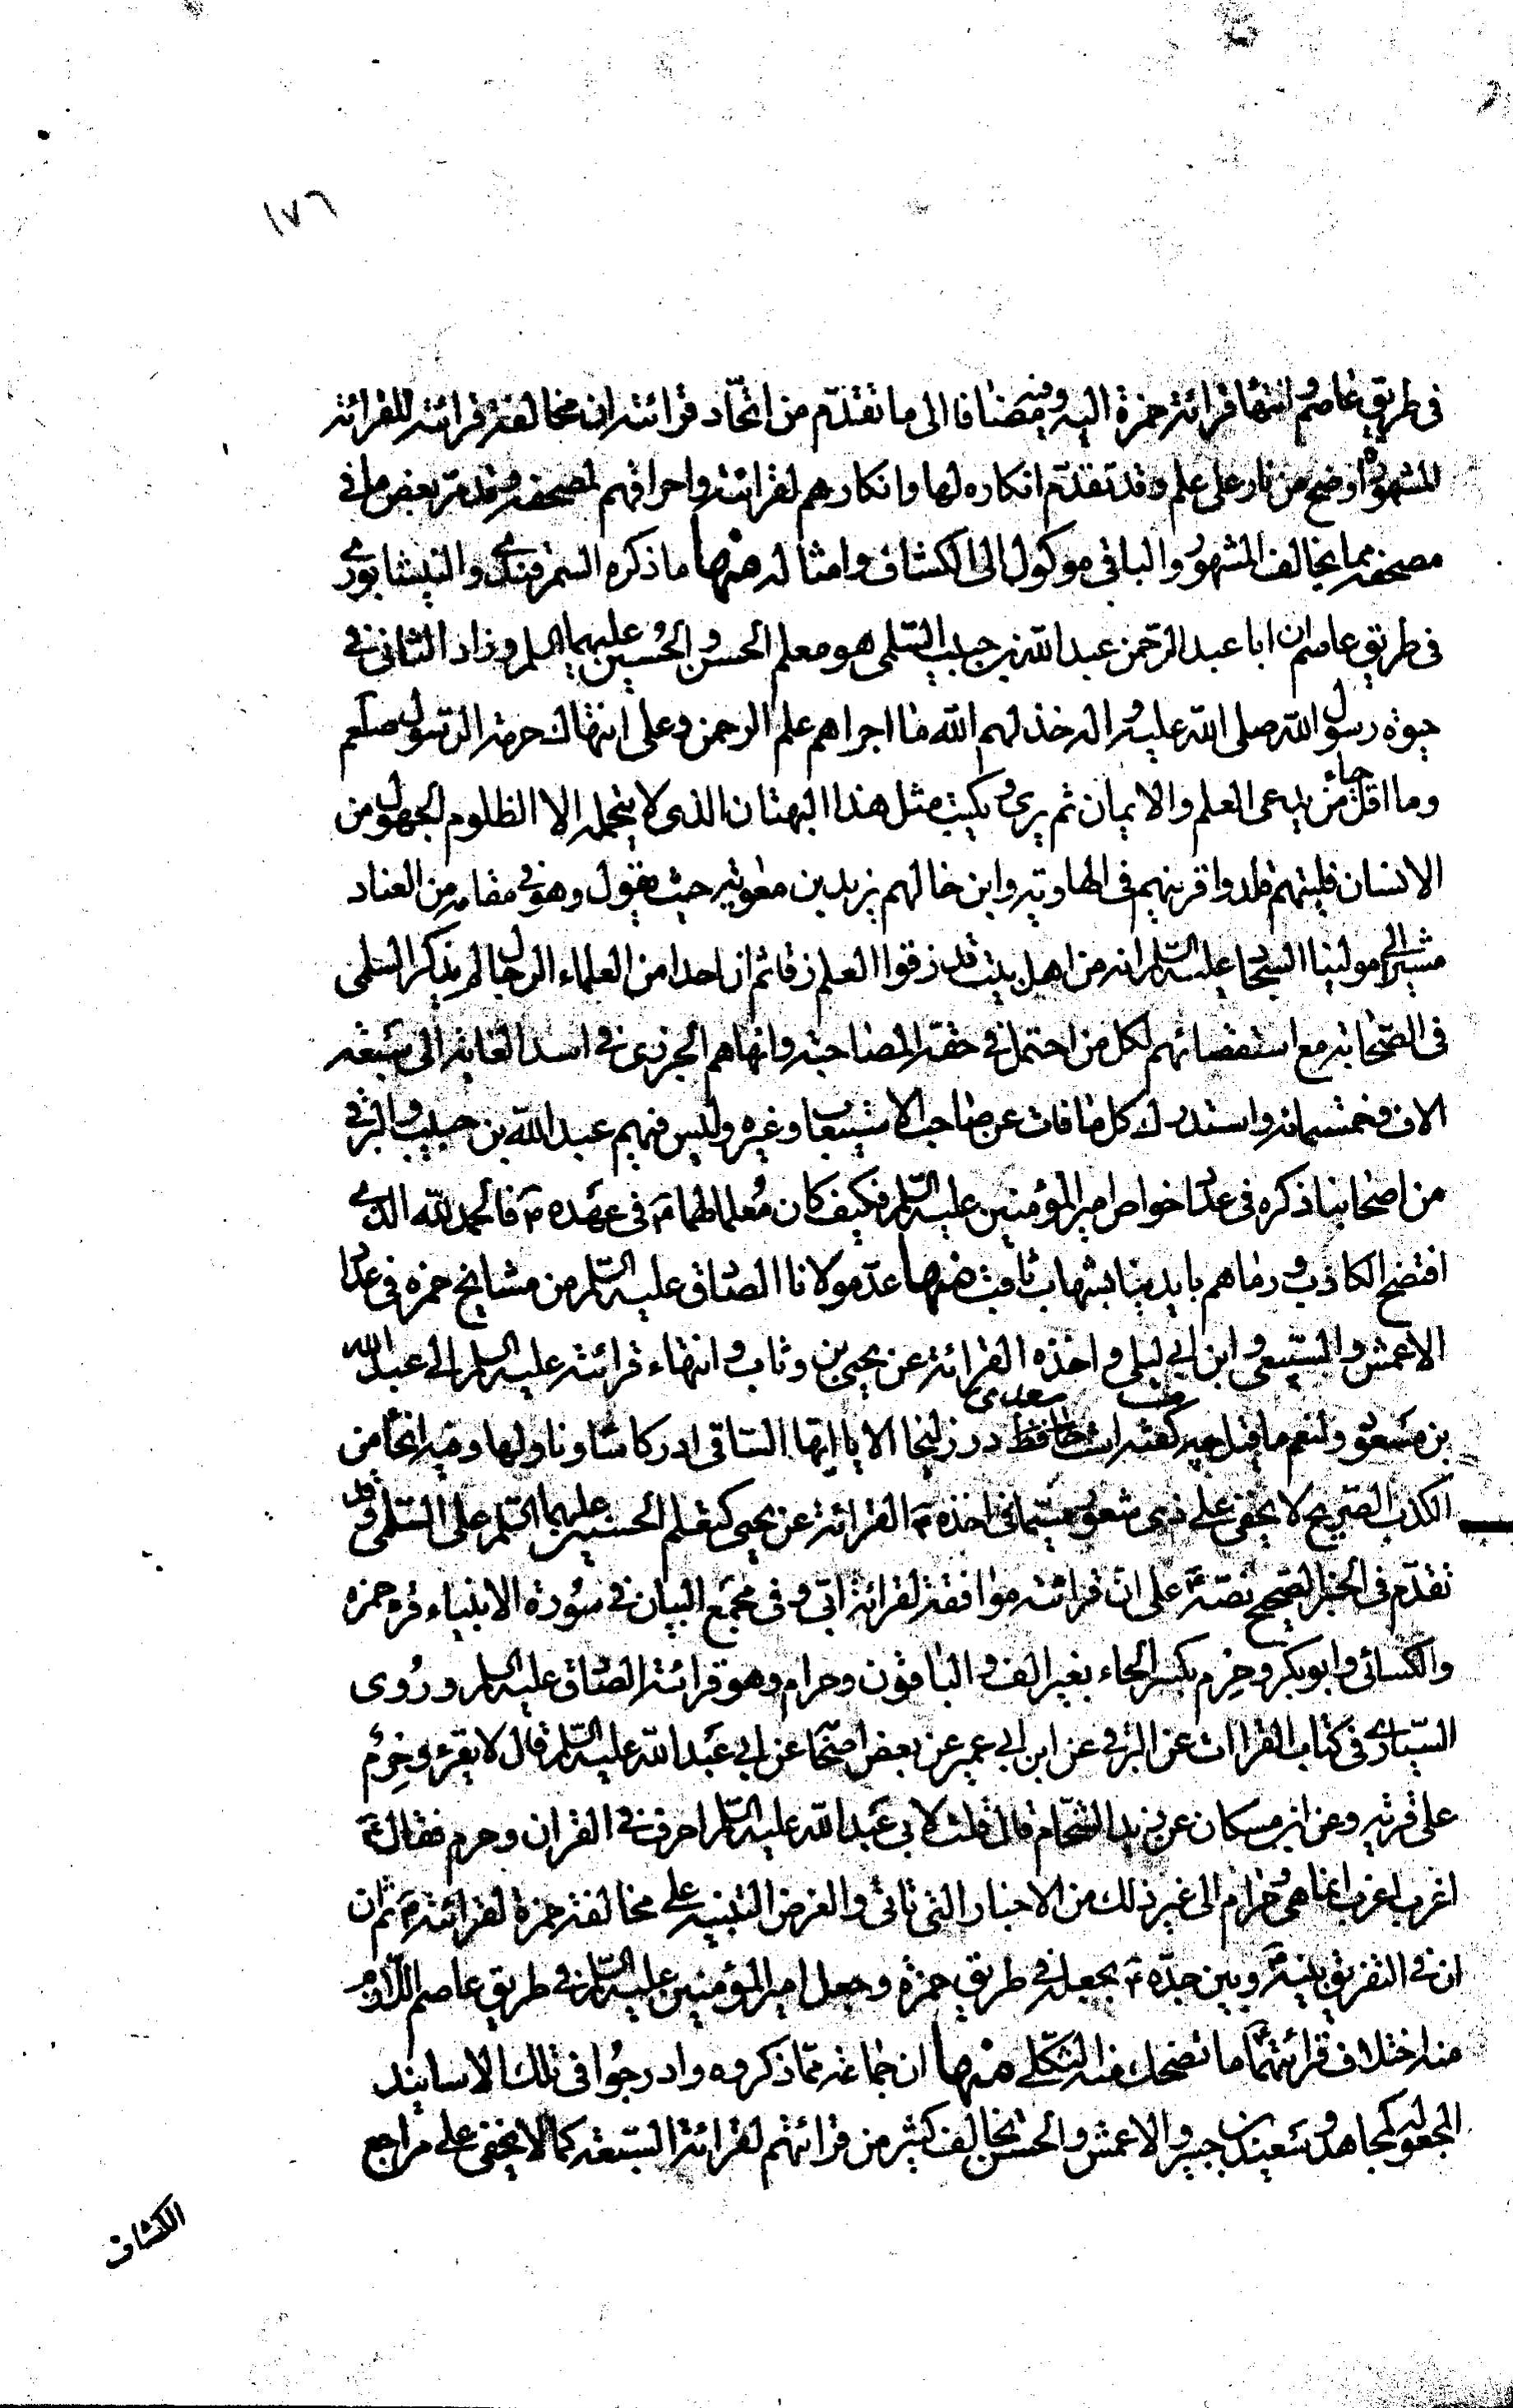 ١٧٦
في طريق عاصم وانتهاء قرائة حمزة اليه وفيه مضافا الى ما تقدم من اتحاد قرائته ان مخالفة قرائته للقرائة
المشهورة اوضح من نار على علم وقد تقدم انكاره لها وانكارهم لقرائته واحراقهم لمصحفه وقد مر بعض ما في
مصحفه مما يخالف المشهور والباقي موكول الى الكشاف وامثاله منها ما ذكره السمرقندي والنيشابوري
في طريق عاصم ان ابا عبد الرحمن عبد الله بن حبيب السلمي هو معلم الحسن والحسين عليهما السلم وزاد الثاني في
حيوة رسول الله صلى الله عليه واله خذلهم الله ما اجراهم على الرحمن وعلى انتهاك حرمة الرسول صلعم
وما اقل حياء من يدعى العلم والايمان ثم يرى ويكتب مثل هذا البهتان الذي لا يتحمله الا الظلوم الجهول من
الانسان فليتهم قلدوا قرينهم في الهاوية وابن خالهم يزيد بن معوية حيث يقول وهو في مقام من العناد
مشيرا الى مولينا السجاد عليه السلم انه من اهل بيت قد زقوا العلم زقا ثم ان احدا من العلماء الرجال لم يذكر السلمى
في الصحابة مع استقصائهم لكل من احتمل في حقه المصاحبة وانهاهم الجزرى في اسد الغابة الى سبعة
الاف وخمسمائة واستدرك كل ما فات عن صاحب الاستيعاب وغيره وليس فيهم عبد الله بن حبيب والبرقي
من اصحابنا ذكره في عداد خواص امير المؤمنين عليه السلم فكيف كان معلما لهما ع في عهده ص فالحمد لله الذي
افتضح الكاذب ورماهم بايدينا بشهاب ثاقب منها عد مولانا الصادق عليه السلم من مشايخ حمزه في عداد
الاعمش والسبيعي وابن ابي ليلى واخذه القرائة عن يحيى بن وثاب وانتهاء قرائته عليه السلم الى عبد الله
بن مسعود ولنعم ما قيل چه خوب گفته است سعدى حافظ در زليخا الا يا ايها الساقى ادر كاسا وناولها وفيه انحاء من
الكذب الصريح لا يخفى على ذى شعور سيما في اخذه ع القرائة عن يحيى كتعلم الحسنين عليهما السلم على السلمى وقد
تقدم في الخبر الصحيح نصه ع على ان قرائته موافقة لقرائة ابي وفي مجمع البيان في سورة الانبياء قرء حمزه
والكسائي وابو بكر وحِرم بكسر الحاء بغير الف والباقون وحرام وهو قرائة الصادق عليه السلم وروى
السياري في كتاب القراات عن البرقي عن ابن ابي عمير عن بعض اصحابنا عن ابي عبد الله عليه السلم قال لا يقرء وحرم
على قرية وعن ابن مسكان عن زيد الشحام قال قلت لابي عبد الله عليه السلم احرف في القران وحرم فقال ع
اغرب اغرب انما هي وحرام الى غير ذلك من الاخبار التى تاتي والغرض التنبيه على مخالفة حمزة لقرائته ع ثم ان
ان في التفريق بينه ع وبين جده ع بجعله في طريق حمزة وجعل امير المؤمنين عليه السلم في طريق عاصم اللازم
منه اختلاف قرائتهما ما تضحك منه الثكلى منها ان جماعة مما ذكروه وادرجوا في تلك الاسانيد
المجعولة كمجاهد وسعيد بن جبير والاعمش والحسن يخالف كثير من قرائتهم لقرائة السبعة كما لا يخفى على من راجع
الكشاف